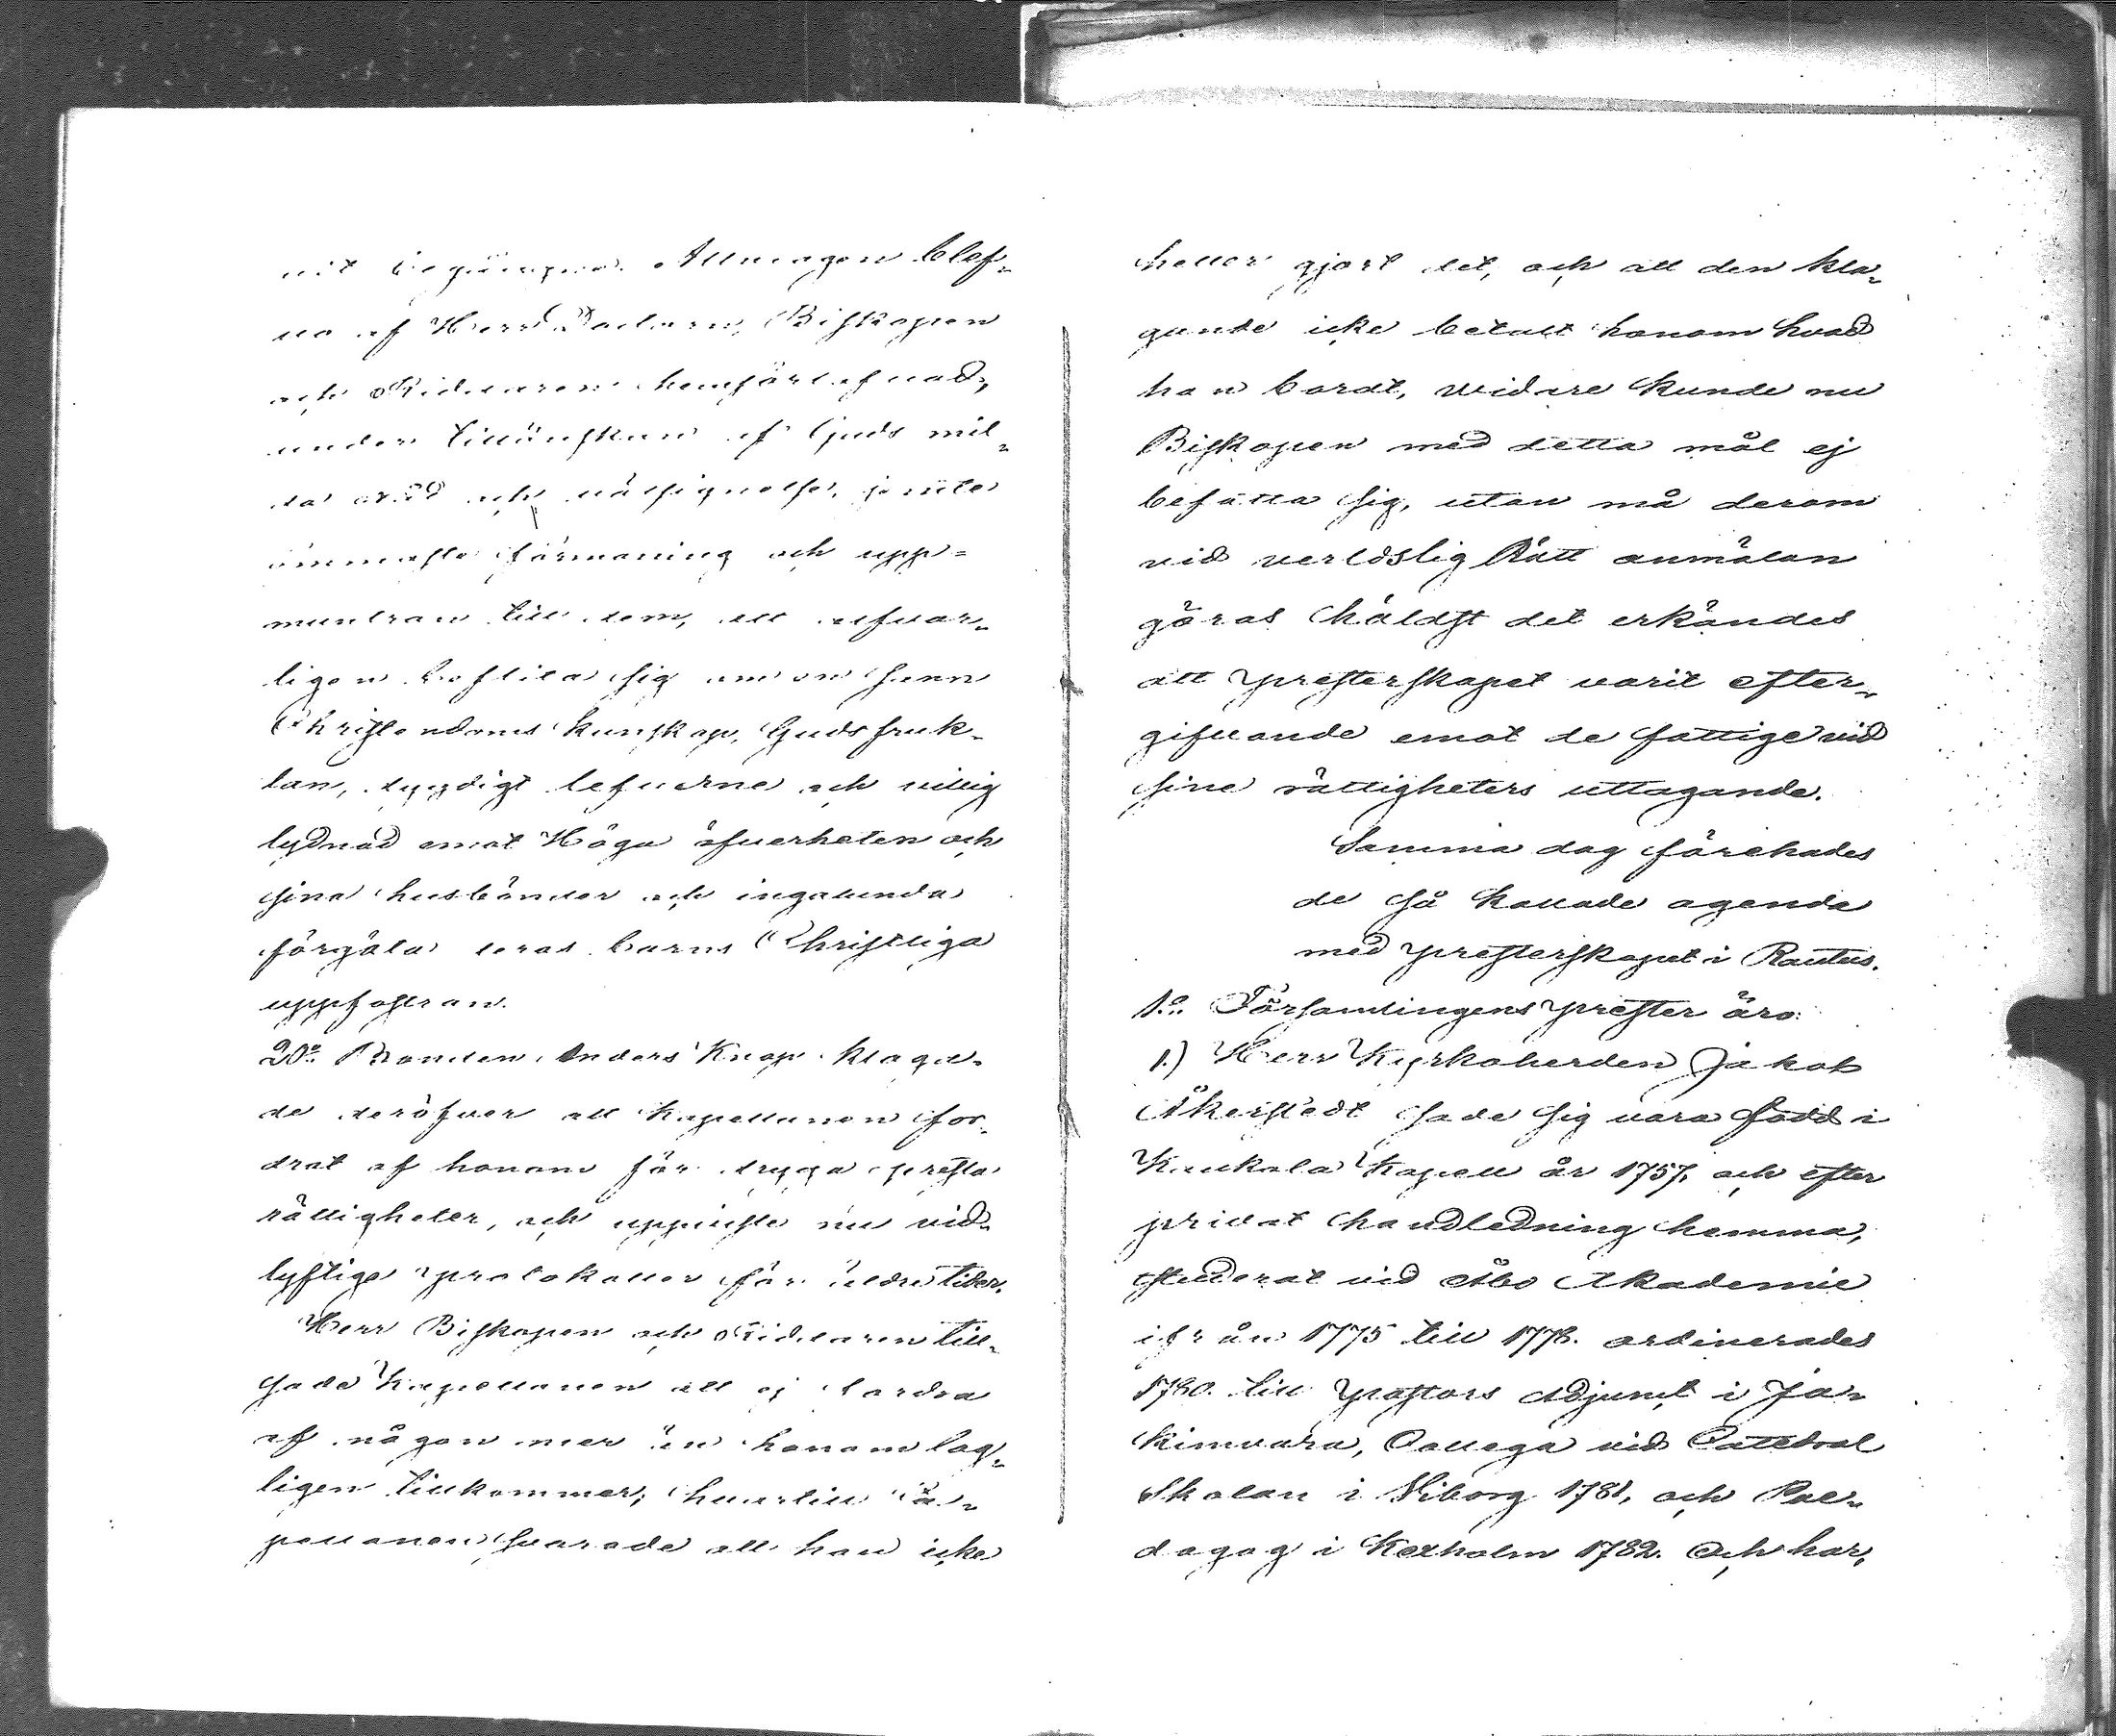 Allmogen blef¬
no af Herr Doctorn, Biskopen
och Riddaren hemförlofvad,
under tillönskan af Guds mil¬
da nåd och välsignelse, jemte
ömmaste förmaning och upp=
muntran till dem, att alfvar¬
ligen beflita sig om en sann
Christendoms kunskap, Guds fruk¬
tan, dygdigt lefverne och villig
lydnad emot Höga öfverheten och
sina husbönder och ingalunda
förgäta deras barns Christliga
uppfostran.
20:o Bonden Anders Knap klaga¬
de deröfver att Kapellanen for¬
drat af honom för dryga presta
rättigheter, och uppviste nu vid¬
lyftige protokoller för äldre tider.
Herr Biskopen och Riddaren till¬
sade Kapellanen att ej fordra
af någon mer än honom lag¬
ligen tillkommer; hvartill Ca¬
pellanen svarade att han icke
heller gjort det, och att den kla¬
gande icke betalt honom hvad
han bordt, widare kunde nu
Biskopen med detta mål ej
befatta sig, utan må derom
vid verldslig Rätt anmälan
göras häldst det erkändes
att presterskapet varit efter¬
gifvande emot de fattige vid
sine rättigheters uttagande.
Samma dag förehades
de så kallade agenda
med presterskapet i Rautus.
1:o Församlingens prester äro:
1.) Herr Kyrkoherden Jakob
Åkerstedt sade sig vara född i
Kaukola Kapell år 1757, och efter
privat handledning hemma,
studerat vid Åbo Akademie
ifrån 1775 till 1778. ordinerades
1780. till pastors Adjunct i Ja¬
kimvara, Collega vid Catedral
Skolan i Viborg 1781, och Pæ¬
dagog i Kexholm 1782. Och har,